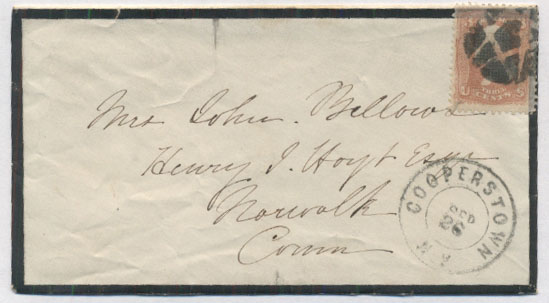 Mrs John. Bellows
Henry J. Hoyt Esqr
Norwalk
Conn
U THREE S
CENTS
COOPERSTOWN
N.Y.
DEC